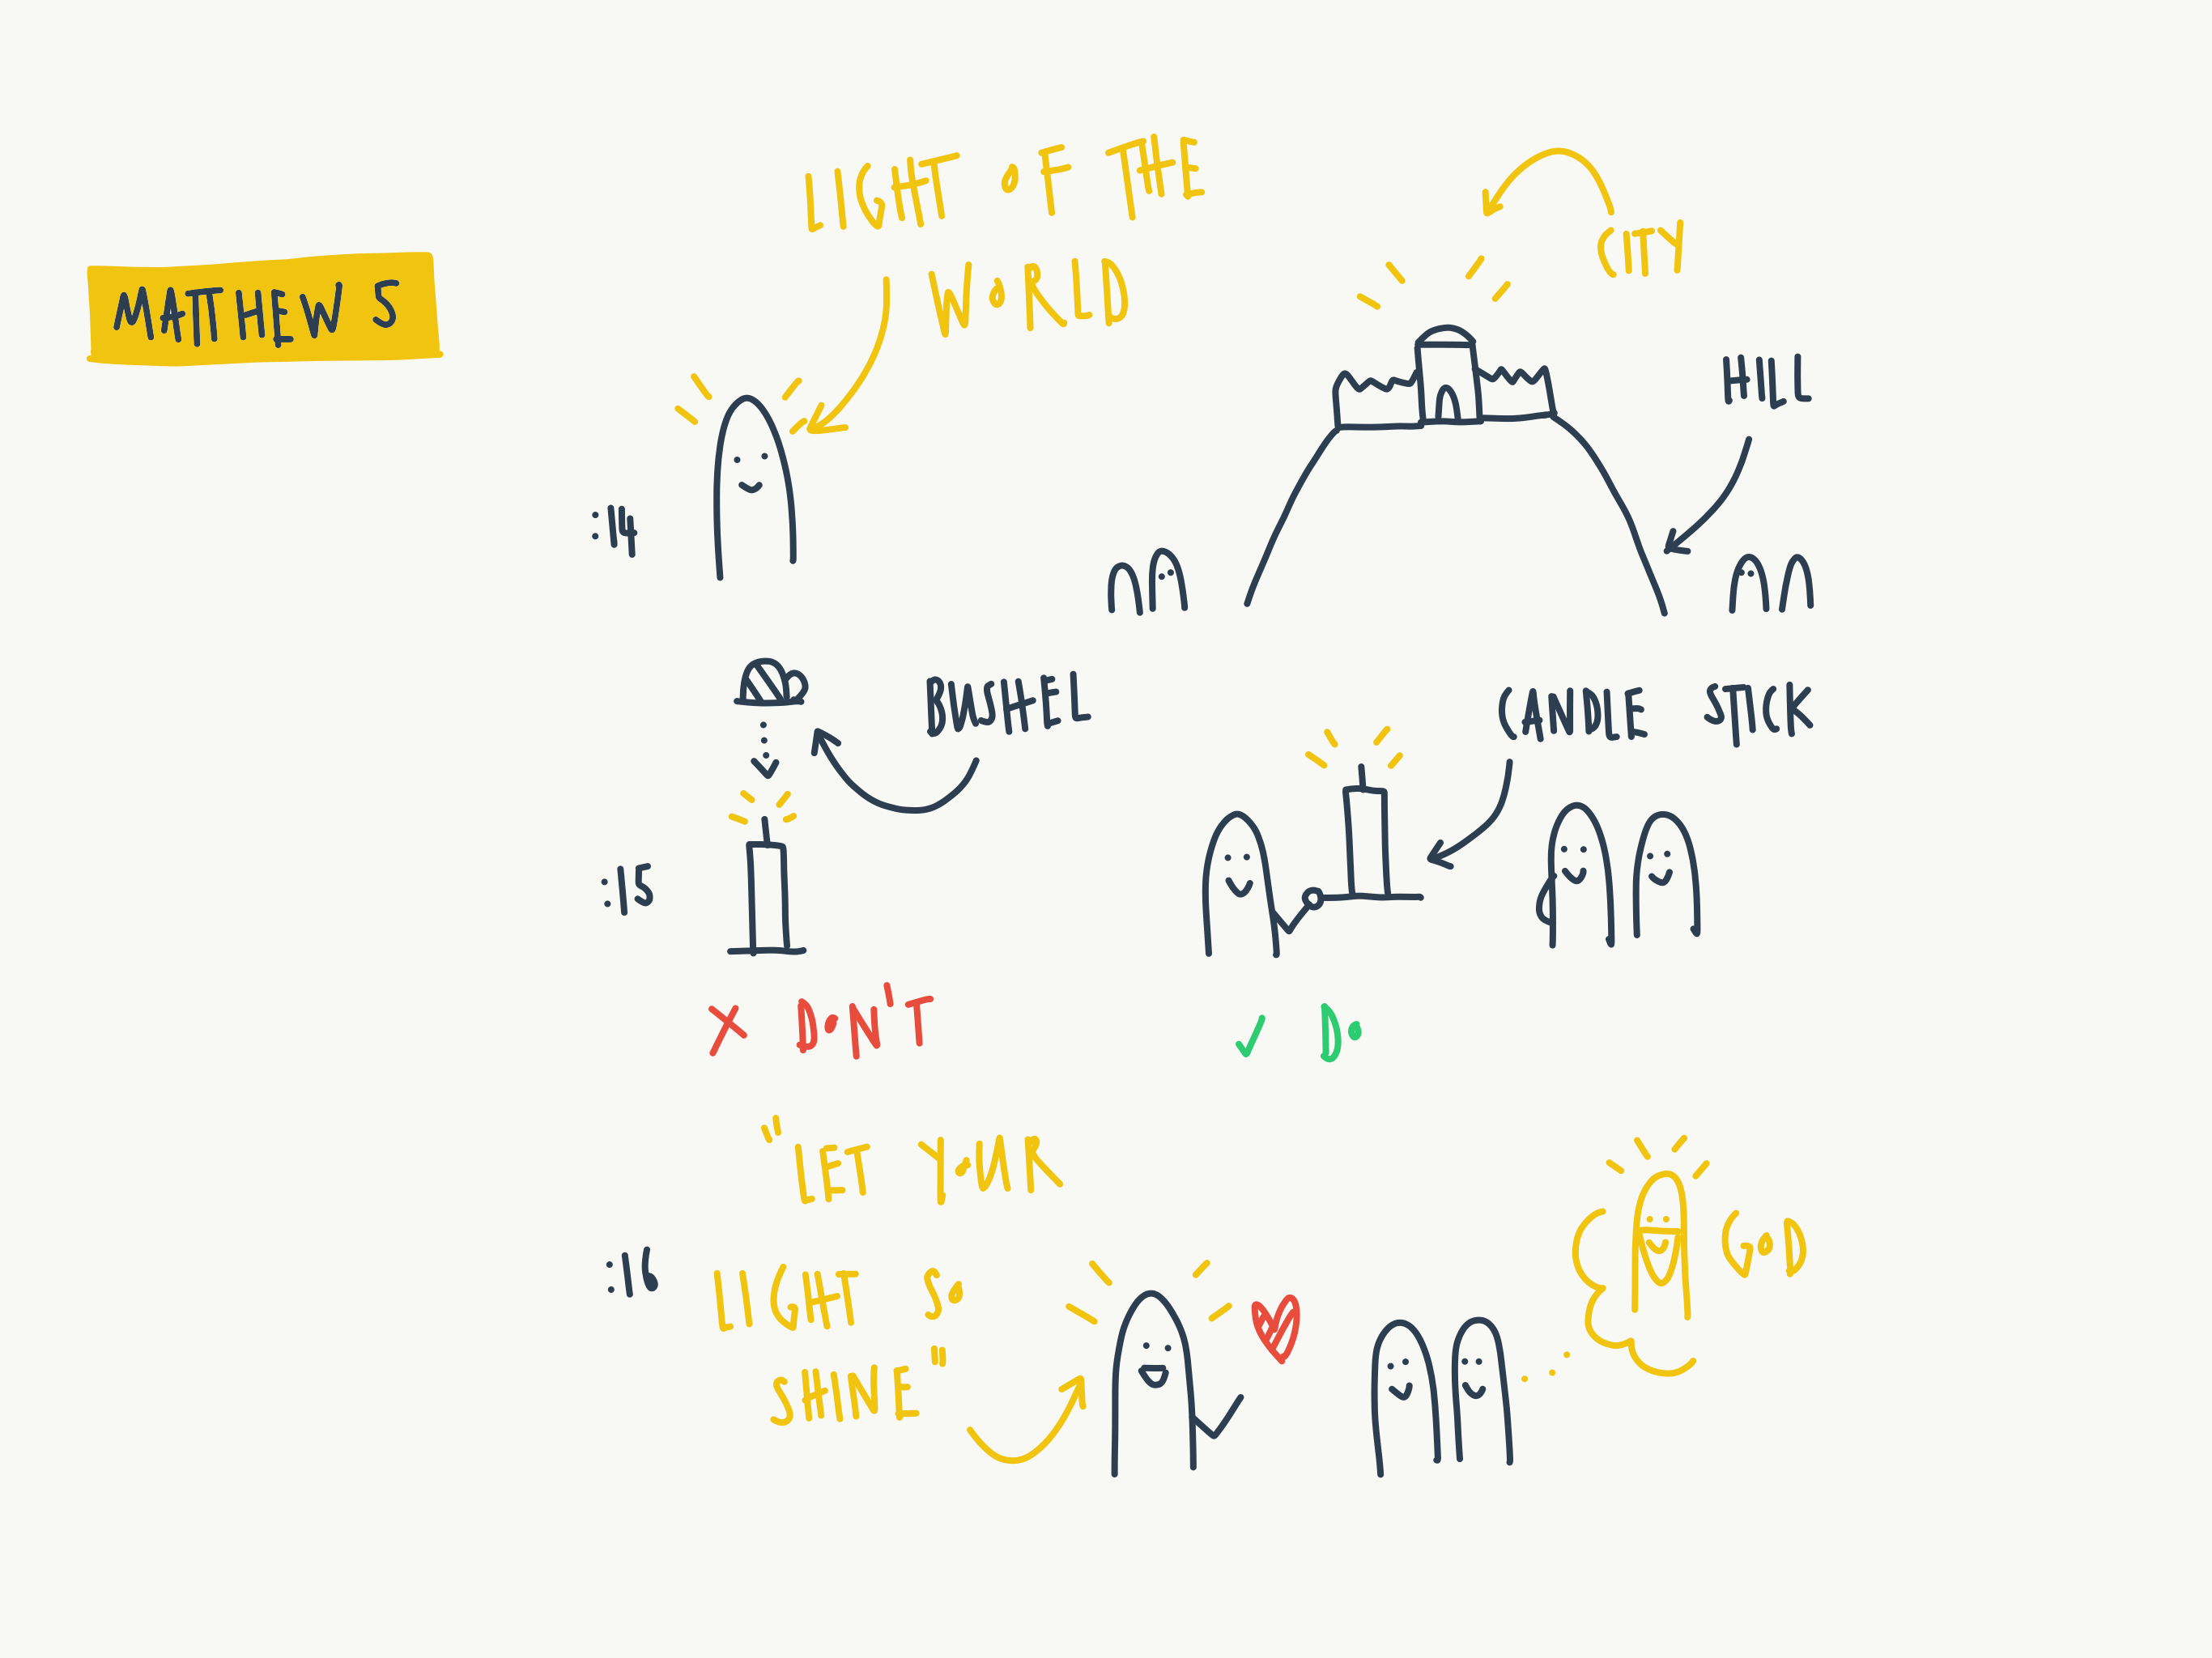 MATTHEW 5
LIGHT OF THE
WORLD
CITY
HILL
:14
BUSHEL
CANDLE STICK
:15
X DON'T
✓ DO
"LET YOUR
:16
LIGHT SO
SHINE"
GOD